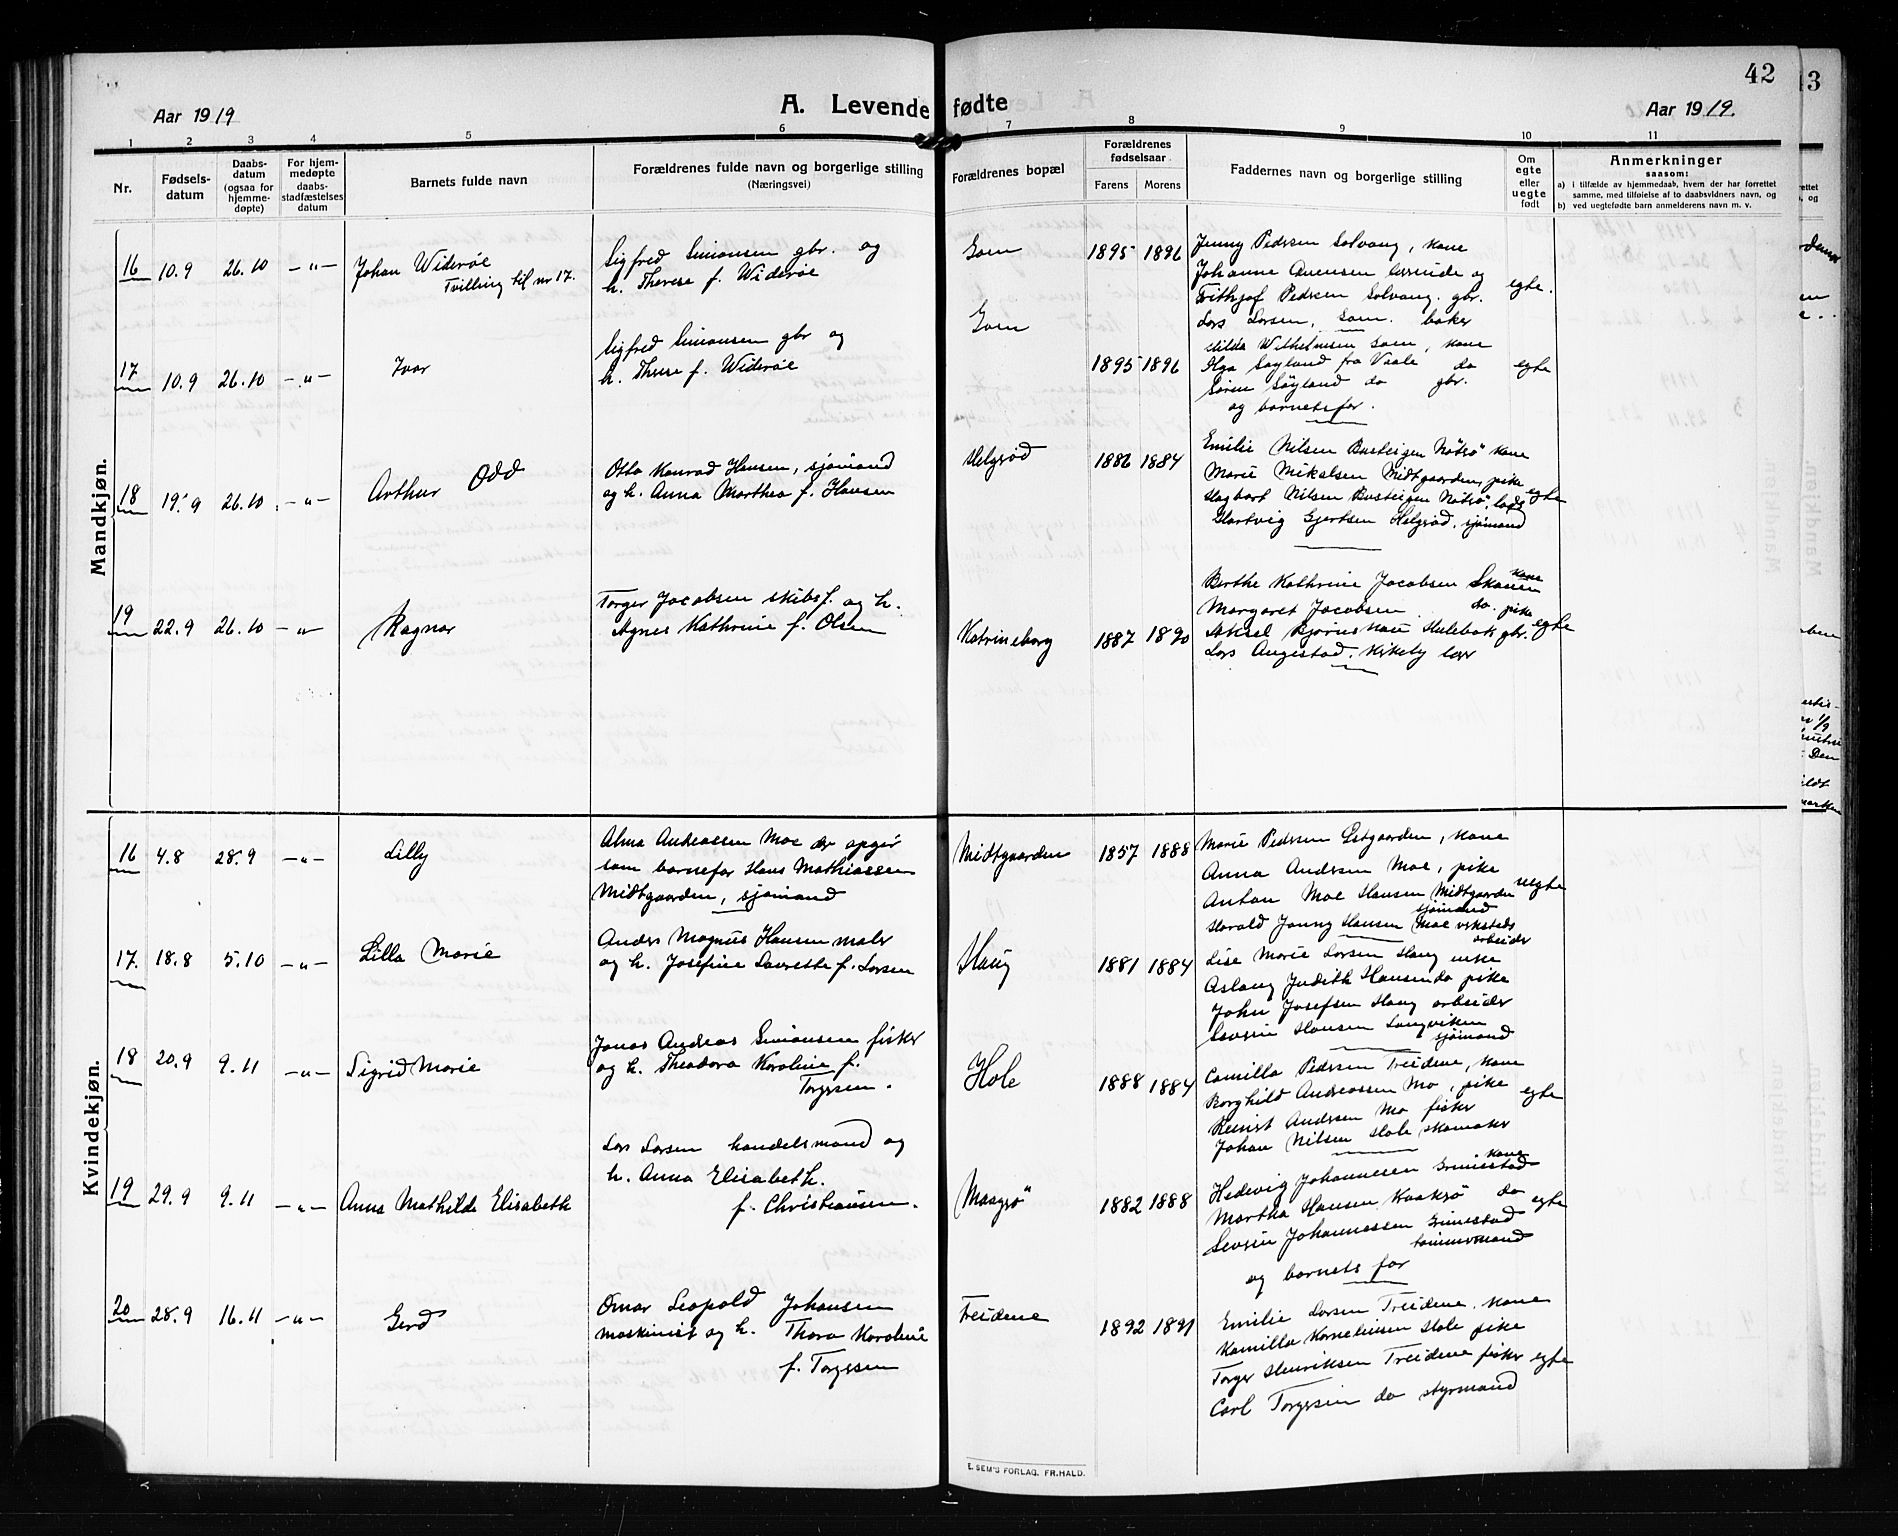 42
Aar 1919
A. Levende fødte
Aar 1919.
1 2 3 4 5 6 7 8 9 10 11
Nr.
Fødsels-
datum
Daabs-
datum
(ogsaa for
hjemme-
døpte)
For hjem-
medøpte
daabs-
stadfæstelses
datum
Barnets fulde navn
Forældrenes fulde navn og borgerlige stilling
(Næringsvei)
Forældrenes bopæl
Forældrenes
fødselsaar
Farens Morens
Faddernes navn og borgerlige stilling
Om
egte
eller
uegte
født
Anmerkninger
saasom:
a) i tilfælde av hjemmedaab, hvem der har forrettet
samme, med tilføielse af to daabsvidners navn, og
b) ved uegtefødte barn anmelderens navn m. v.
Mandkjøn.
16 10.9 26.10 -"-
Johan Widerøe
Tvilling til nr 17.
Sigfred Simonsen gbr. og
h. Therese f. Widerøe
Som
1895 1896
Jenny Pedersen Solvang, kone
Johanne Anensen lærerinde og
Frithjof Pedersen Solvang. gbr.
Lars Larsen, Som. baker
egte.
17 10.9 26.10 -"-
Ivar
Sigfred Simonsen gbr og
h. Therese f. Widerøe
Som
1895 1896
Hilda Wilhelmsen Som, kone
Olga Søyland fra Vaale do
Søren Søyland do gbr.
og barnets far.
egte
18 19.9 26.10 -"-
Arthur Odd
Otto Konrad Hansen, sjømand
og h. Anna Marthea f. Hansen
Helgerød
1886 1884
Emilie Nilsen Buerteigen Nøtrø kone
Marie Mikalsen Midtgaarden, pike
Hagbart Nilsen Buerteigen Nøtrø, lods
Hartvig Gjertsen Helgerød, sjømand
egte
19 22.9 26.10 -"-
Ragnar
Torger Jacobsen skibsf. og h.
Agnes Kathrine f. Olsen
Katrineborg
1887 1890
Berthe Kathrine Jacobsen Skauen kone
Margaret Jacobsen do. pike
Aksel Bjørnskau Hulebak gbr.
Lars Angestad. Kirkeby lær
egte
Kvindekjøn.
16 4.8 28.9 -"-
Lilly
Alma Andreassen Moe der opgir
som barnefar Hans Mathiassen
Midtgaarden, sjømand
Midtgaarden
1857 1888
Marie Pedersen Østgaarden, kone
Anna Andersen Moe, pike
Anton Moe Hansen Midtgaarden
sjømand
Harald Jonny Hansen Moe verksteds
arbeider
uegte
17. 18.8 5.10 -"-
Lilla Marie
Anders Magnus Hansen maler
og h. Josefine Laurette f. Larsen
Haug
1881 1884
Lise Marie Larsen Haug enke
Aslaug Judith Hansen do pike
John Josefsen Haug arbeider
Severin Hansen Langviken
sjømand
18 20.9 9.11 -"-
Sigrid Marie
Jonas Andreas Simonsen fisker
og h. Theodora Karoline f.
Torgersen.
Hole
1888 1884
Camilla Pedersen Treidene, kone
Borghild Andreassen Mo, pike
Reinert Andersen Mo fisker
Johan Nilsen Hole, skomaker
egte
19 29.9 9.11 -"-
Anna Mathilde Elisabeth
Lars Larsen handelsmand og
h. Anna Elisabeth.
f. Christiansen.
Maagrø
1882 1888
Hedevig Johannesen Grimestad kone
Martha Hansen Kvakrø do
Severin Johannessen Grimestad
tømmermand
og barnets far
egte
20 28.9 16.11 -"-
Gerd
Omar Leopold Johansen
maskinist og h. Thora Karoline
f. Torgersen
Treidene
1892 1891
Emilie Larsen Treidene. kone
Kamilla Kornelinsen Hole pike
Torger Henriksen Treidene fisker
Carl Torgersen do styrmand
egte
E. SEM'S FORLAG, FR.HALD.